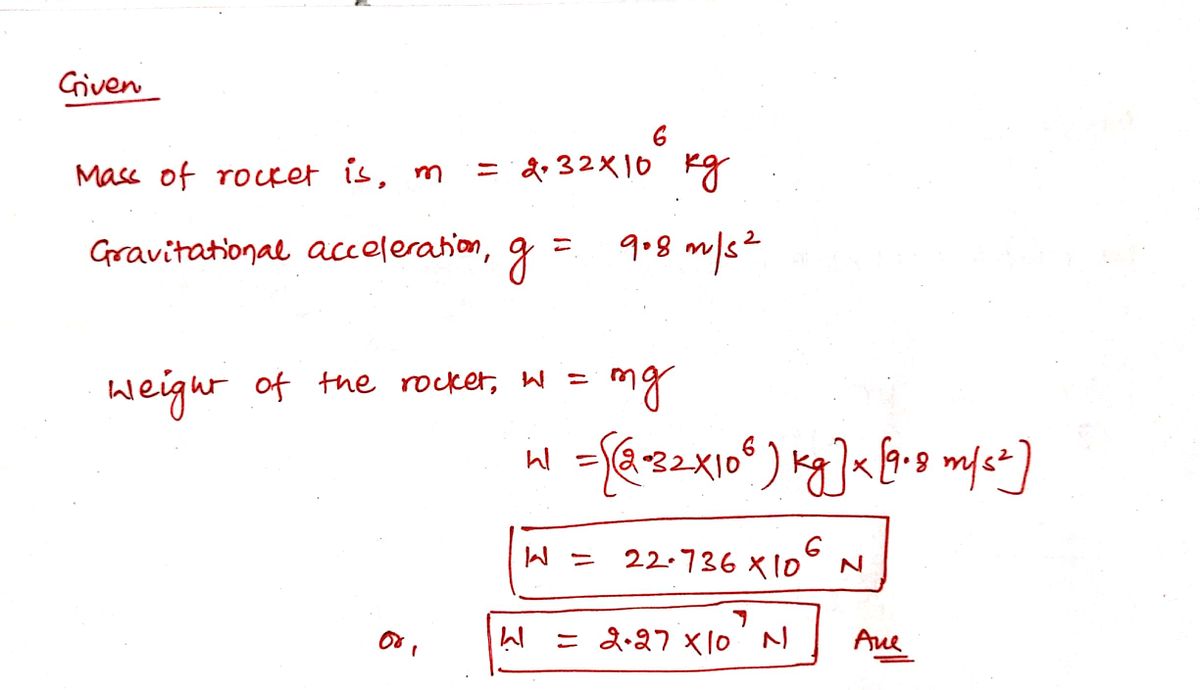 Given
Mass of rocket is, m = 2.32×10⁶ kg
Gravitational acceleration, g = 9.8 m/s²
Weight of the rocket, W = mg
W = {(2.32×10⁶) kg}×[9.8 m/s²]
W = 22.736 ×10⁶ N
or, W = 2.27 ×10⁷ N Ans